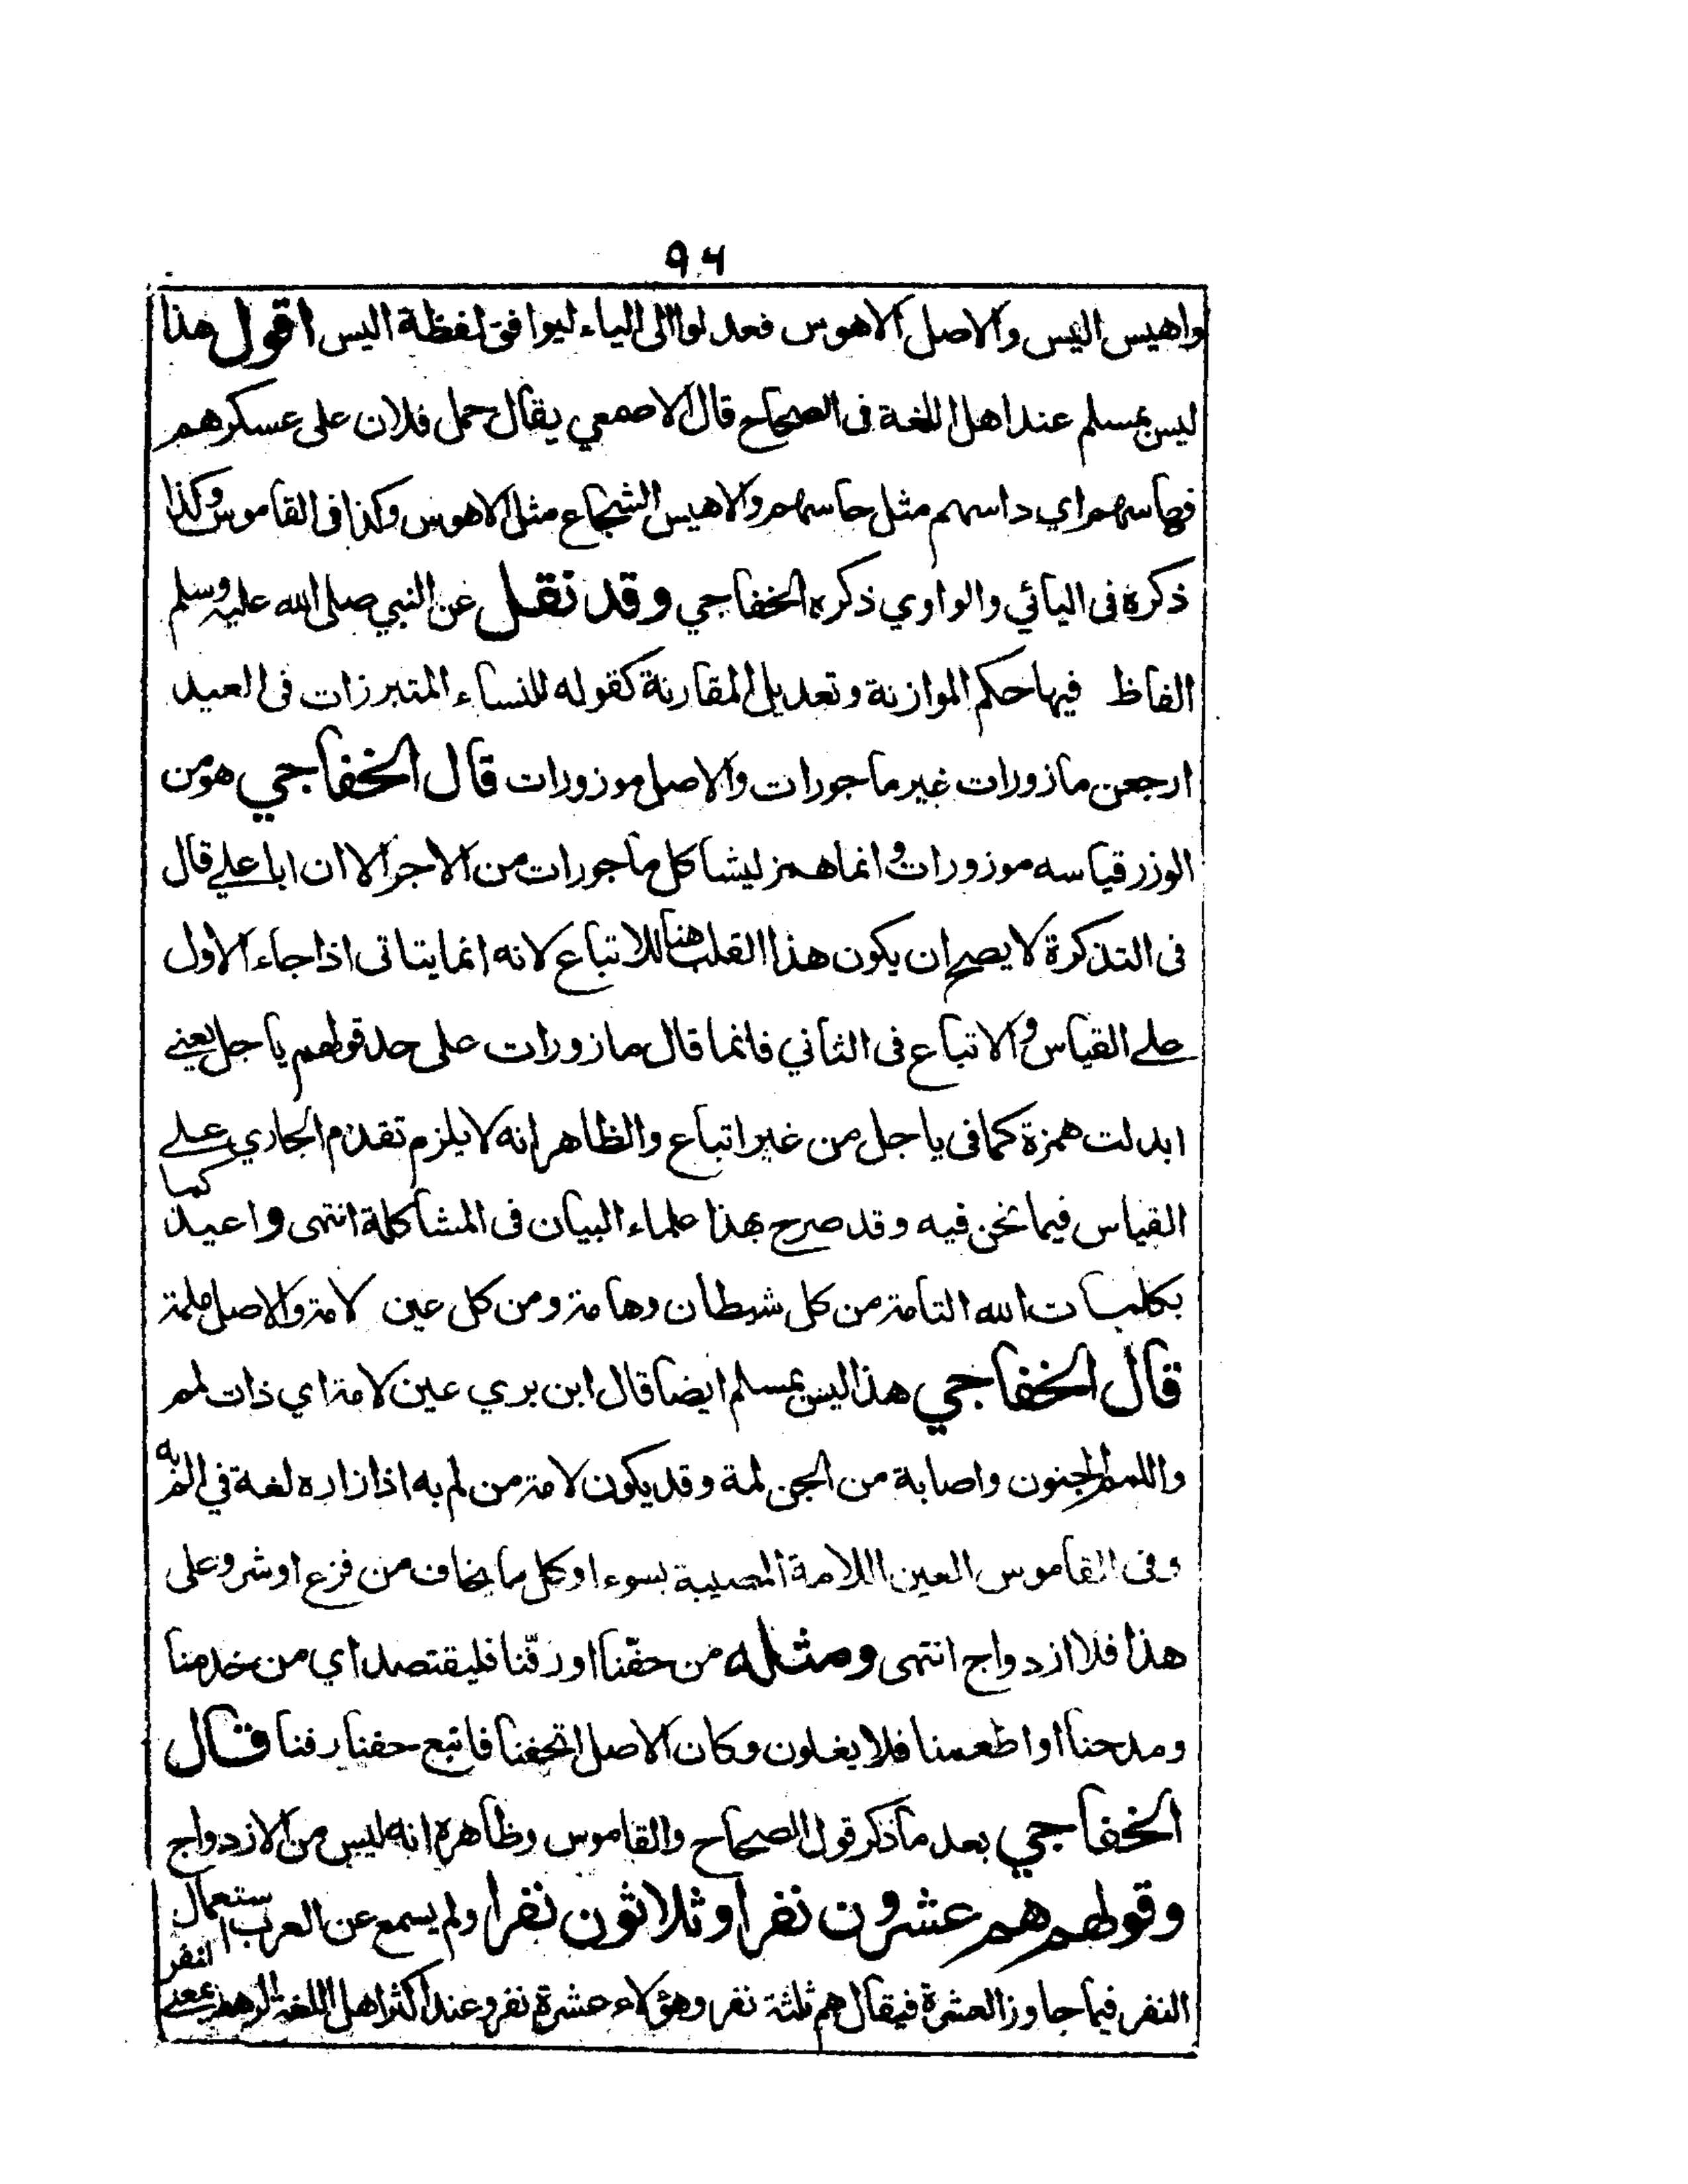 ٩٤
واهيس اليس والاصل الاهوس فعدلوا الى الياء ليوافق لفظة اليس اقول هذا
ليس بمسلم عند اهل اللغة فى الصحاح قال الاصمعي يقال حمل فلان على عسكرهم
فهاسهم اي داسهم مثل حاسهم والاهيس الشجاع مثل الاهوس وكذا فى القاموس وكذا
ذكره فى اليائي والواوي ذكره الخفاجي وقد نقل عن النبي صلى الله عليه وسلم
الفاظ فيها حكم الموازنة وتعديل المقارنة كقوله للنساء المتبرزات فى العيد
ارجعن مازورات غير ماجورات والاصل موزورات قال الخفاجي هو من
الوزر قياسه موزورات وانما همز ليشاكل ماجورات من الاجر الا ان ابا علي قال
فى التذكرة لا يصح ان يكون هذا القلب هنا للاتباع لانه انما يتاتى اذا جاء الاول
على القياس والاتباع فى الثاني فانما قال مازورات على حد قولهم ياجل يعني
ابدلت همزة كما فى ياجل من غير اتباع والظاهر انه لا يلزم تقدم الجاري على
القياس فيما نحن فيه وقد صرح بهذا علماء البيان فى المشاكلة انتهى واعيذ كما
بكلمات الله التامة من كل شيطان وهامة ومن كل عين لامة والاصل ملمة
قال الخفاجي هذا ليس بمسلم ايضا قال ابن بري عين لامة اي ذات لمم
واللمم الجنون واصابة من الجن لمة وقد يكون لامة من لم به اذا زاره لغة في الم به
وفى القاموس العين اللامة المصيبة بسوء او كل ما يخاف من فزع او شر وعلى
هذا فلا ازدواج انتهى ومثله من حفّنا او رفّنا فليقتصد اي من خدمنا
ومدحنا او اطعمنا فلا يغلون وكان الاصل اتحفنا فاتبع حفنا رفنا قال
الخفاجي بعد ما ذكر قول الصحاح والقاموس وظاهره انه ليس من الازدواج
وقولهم هم عشرون نفرا وثلاثون نفرا ولم يسمع عن العرب استعمال النفر
النفر فيما جاوز العشرة فيقال هم ثلثة نفر وهؤلاء عشرة نفر وعند اكثر اهل اللغة الرهط بمعنى